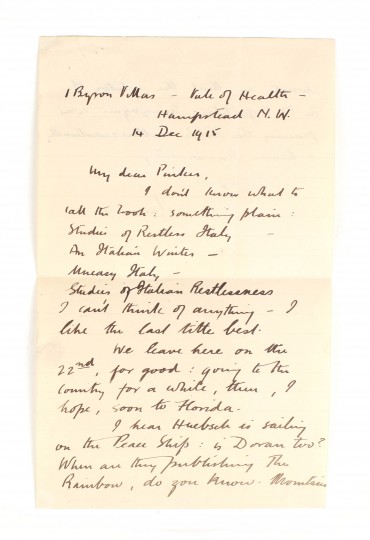 1 Byron Villas – Vale of Health –
Hampstead N.W.
14 Dec 1915
My dear Pinker,
I don't know what to
call the book: something plain:
Studies of Restless Italy –
An Italian Winter –
Uneasy Italy –
Studies of Italian Restlessness
I can't think of anything – I
like the last title best.
We leave here on the
22nd, for good: going to the
country for a while, then, I
hope, soon to Florida.
I hear Huebsch is sailing
on the Peace Ship: is Doran too?
When are they publishing The
Rainbow, do you know. Mountsier